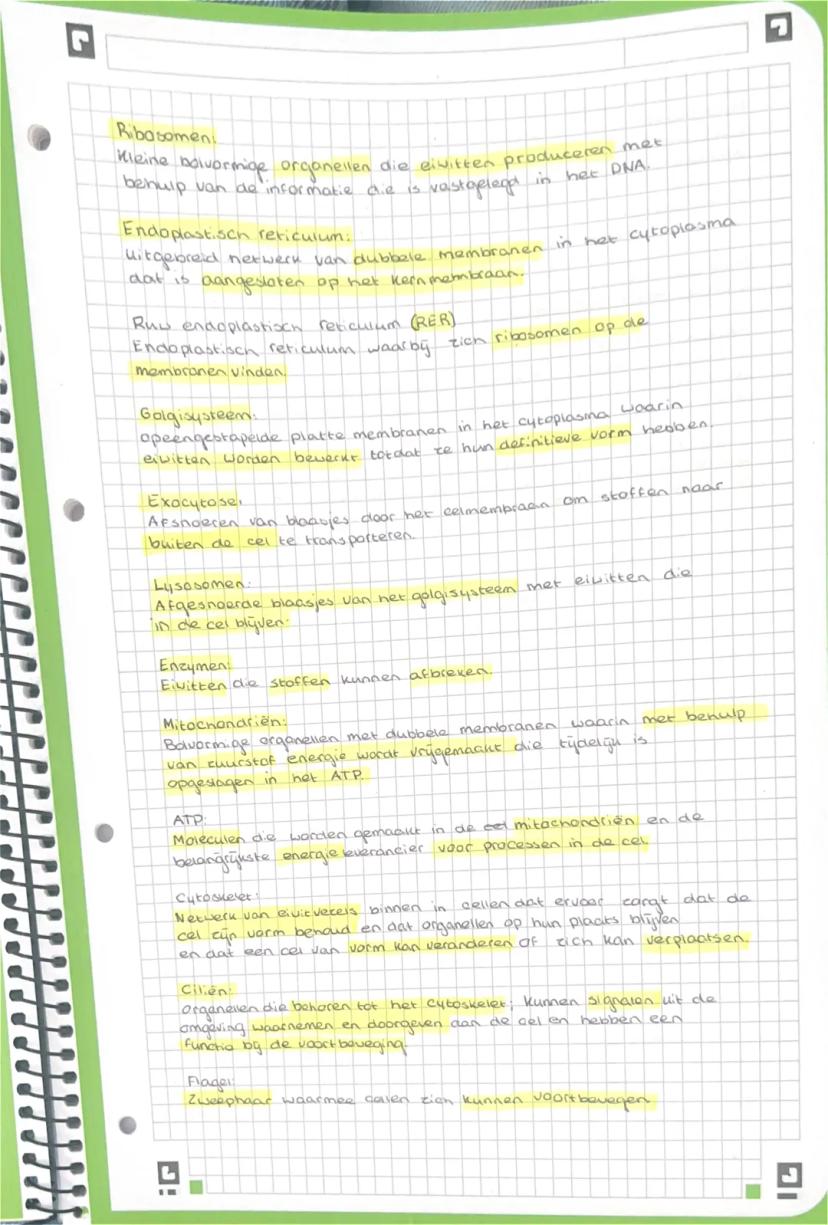 Ribosomen:
Kleine bolvormige organellen die eiwitten produceren met
behulp van de informatie die is vastgelegd in het DNA.
Endoplastisch reticulum:
uitgebreid netwerk van dubbele membranen in het cytoplasma
dat is aangesloten op het kernmembraan.
Ruw endoplastisch reticulum (RER)
Endoplastisch reticulum waarbij zich ribosomen op de
membranen vinden
Golgisysteem:
opeengestapelde platte membranen in het cytoplasma waarin
eiwitten worden bewerkt totdat ze hun definitieve vorm hebben.
Exocytose:
Afsnoeren van blaasjes door het celmembraan om stoffen naar
buiten de cel te transporteren.
Lysosomen:
Afgesnoerde blaasjes van het golgisysteem met eiwitten die
in de cel blijven.
Enzymen:
Eiwitten die stoffen kunnen afbreken.
Mitochondriën:
Bolvormige organellen met dubbele membranen waarin met behulp
van zuurstof energie wordt vrijgemaakt die tijdelijk is
opgeslagen in het ATP.
ATP:
Moleculen die worden gemaakt in de cel mitochondriën en de
belangrijkste energieleverancier voor processen in de cel.
Cytoskelet:
Netwerk van eiwitvezels binnen in cellen dat ervoor zorgt dat de
cel zijn vorm behoud en dat organellen op hun plaats blijven
en dat een cel van vorm kan veranderen of zich kan verplaatsen.
Ciliën:
organellen die behoren tot het cytoskelet; kunnen signalen uit de
omgeving waarnemen en doorgeven aan de cel en hebben een
functie bij de voortbeweging.
Flagel:
Zweephaar waarmee cellen zich kunnen voortbewegen